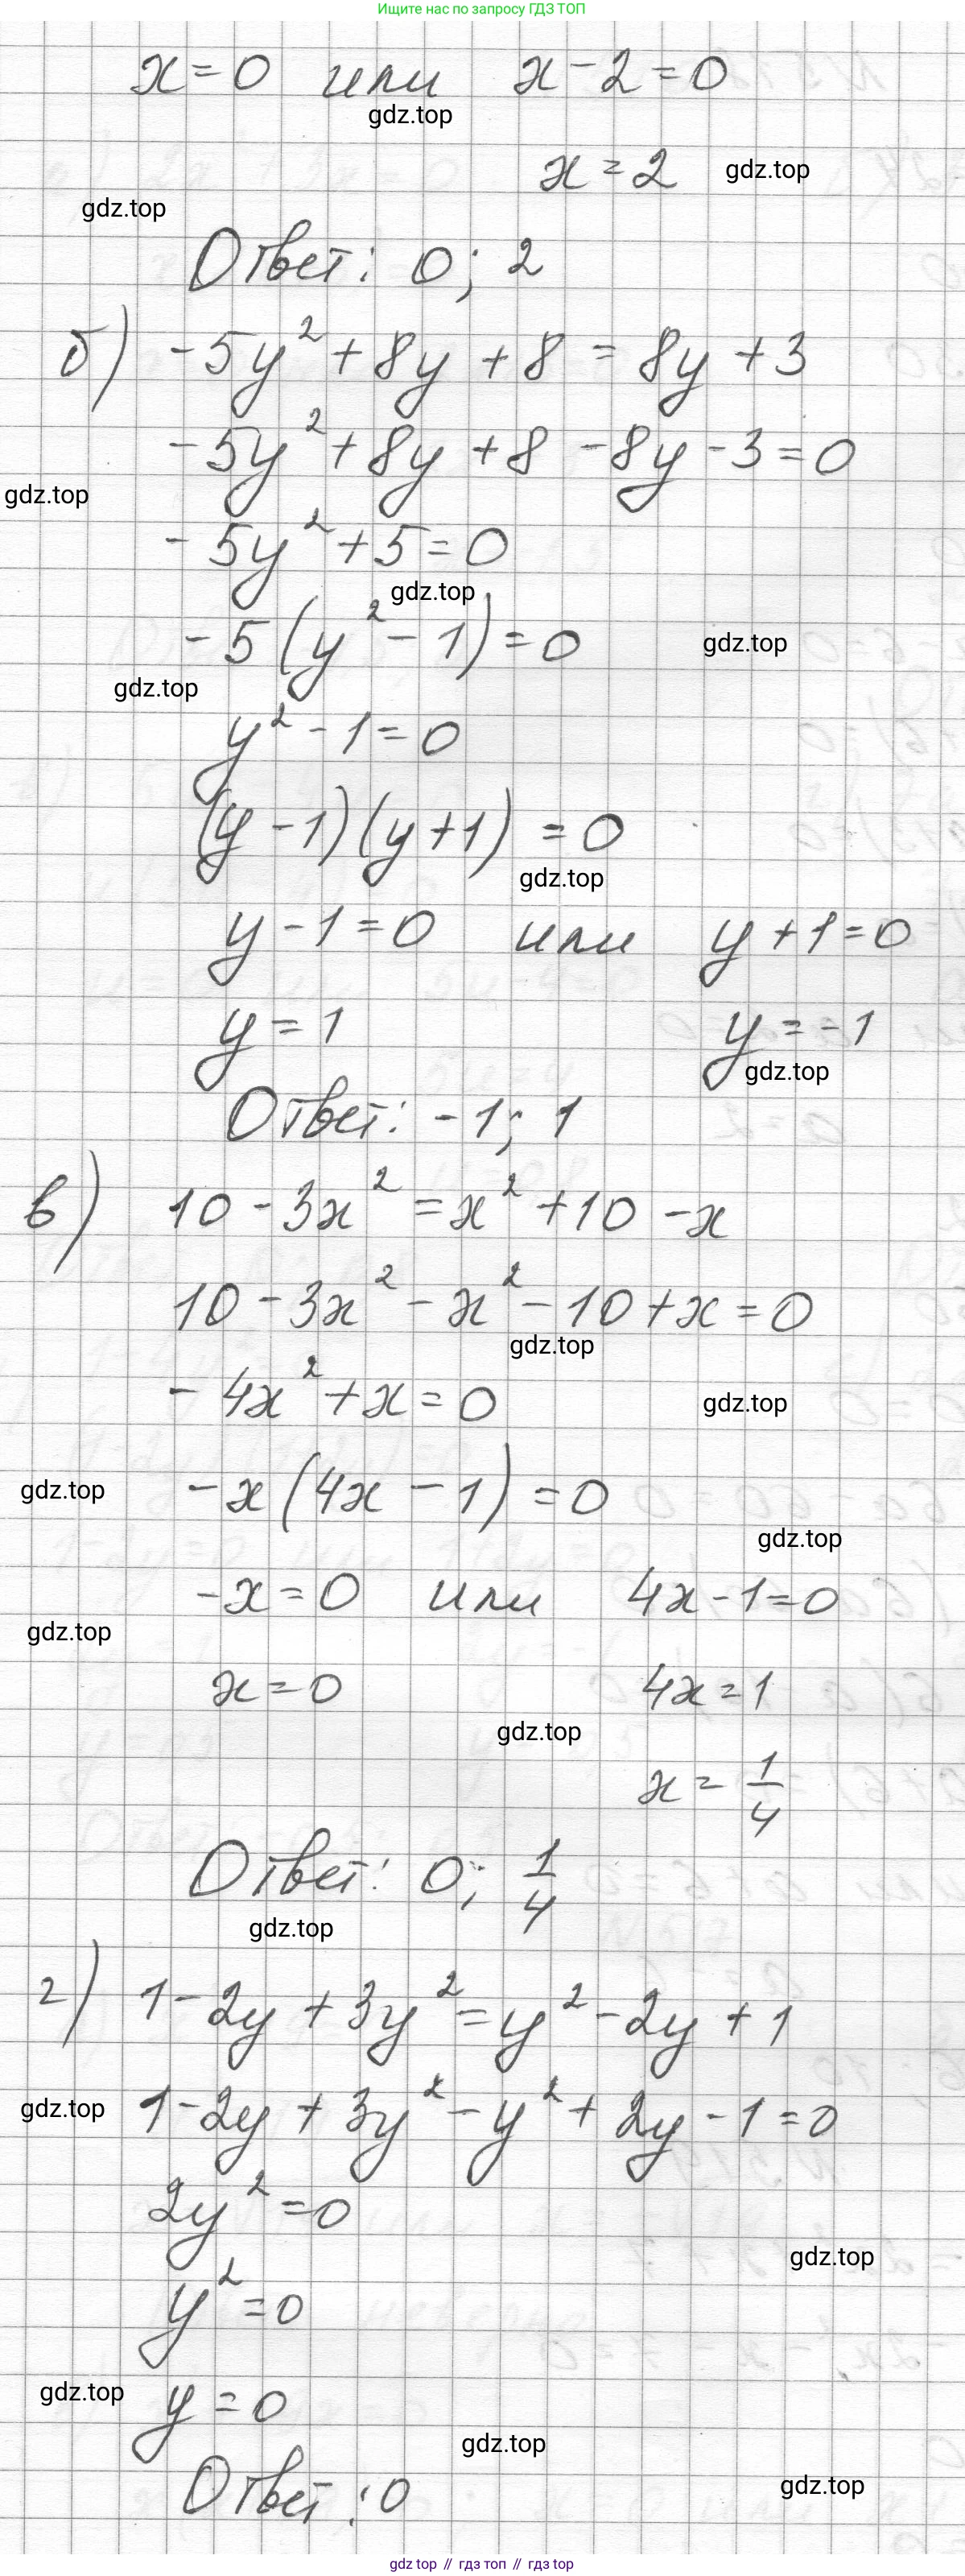 Ищите нас по запросу ГДЗ ТОП
x = 0 или x - 2 = 0
gdz.top
x = 2 gdz.top
gdz.top
Ответ: 0; 2
б) -5y² + 8y + 8 = 8y + 3
-5y² + 8y + 8 - 8y - 3 = 0
gdz.top
-5y² + 5 = 0
gdz.top
-5(y² - 1) = 0 gdz.top
gdz.top
y² - 1 = 0
(y - 1)(y + 1) = 0
gdz.top
y - 1 = 0 или y + 1 = 0
y = 1 y = -1
gdz.top
Ответ: -1; 1
в) 10 - 3x² = x² + 10 - x
10 - 3x² - x² - 10 + x = 0
gdz.top
-4x² + x = 0 gdz.top
gdz.top -x(4x - 1) = 0
gdz.top
-x = 0 или 4x - 1 = 0
gdz.top
x = 0 4x = 1
gdz.top
x = 1/4
Ответ: 0; 1/4
gdz.top
г) 1 - 2y + 3y² = y² - 2y + 1
gdz.top 1 - 2y + 3y² - y² + 2y - 1 = 0
2y² = 0
gdz.top
y² = 0
gdz.top y = 0
gdz.top
Ответ: 0 gdz.top
gdz top // гдз топ // gdz top